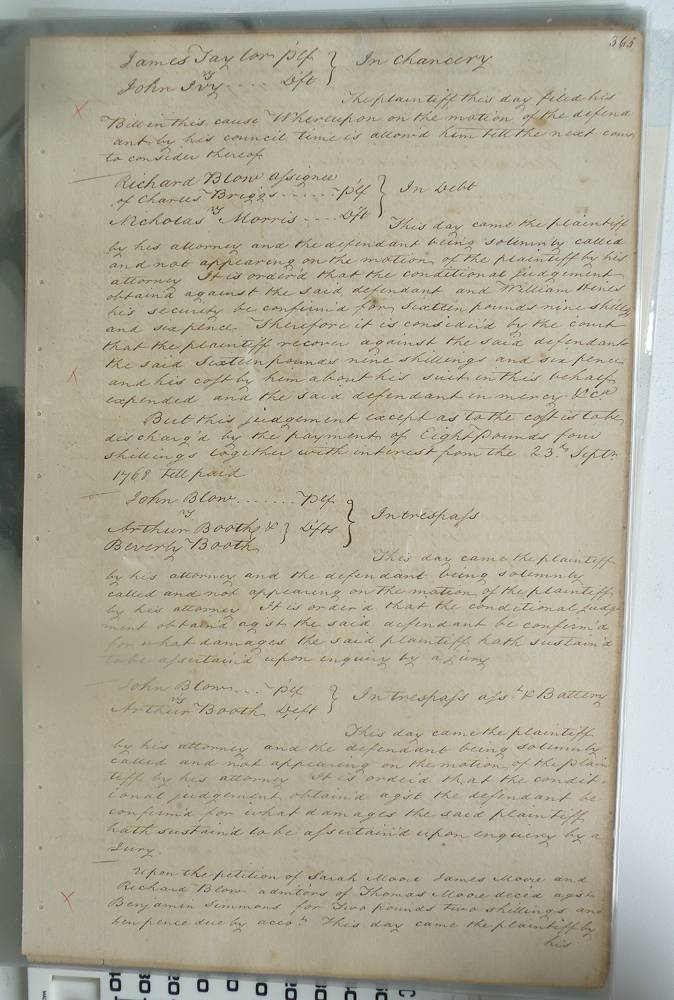 365
James Taylor plf } In chancery
vs
John Ivy .... Deft
The plaintiff this day filed his
Bill in this cause Whereupon on the motion of the defend
ant by his council time is allow'd him till the next court
to consider thereof
Richard Blow assignee
of Charles Briggs ...... plf } In Debt
vs
Nicholas Morris .... Deft
This day came the plaintiff
by his attorney and the defendant being solemnly called
and not appearing on the motion of the plaintiff by his
attorney It is order'd that the conditional judgement
obtain'd against the said defendant and William Hines
his security be confirm'd for Sixteen pounds nine shillings
and six pence Therefore it is consider'd by the court
that the plaintiff recover against the said defendants
the said Sixteen pounds nine shillings and six pence
and his cost by him about his suit in this behalf
expended and the said defendant in mercy &ca
But this judgement except as to the cost is to be
discharg'd by the payment of Eight Pounds four
shillings together with interest from the 23d Septr
1768 till paid
John Blow ....... Plf
vs
Arthur Booth & } Defts } In trespass
Beverly Booth
This day came the plaintiff
by his attorney and the defendant being solemnly
called and not appearing on the motion of the plaintiff
by his attorney It is order'd that the conditional judg-
ment obtain'd agst the said defendant be confirm'd
for what damages the said plaintiff hath sustain'd
to be assertain'd upon enquiry by a jury
John Blow ... plf } In trespass asst & Battery
vs
Arthur Booth Deft
This day came the plaintiff
by his attorney and the defendant being solemnly
called and not appearing on the motion of the plain
tiff by his attorney It is order'd that the condit-
ional judgement obtain'd agst the defendant be
confirm'd for what damages the said plaintiff
hath sustain'd to be assertain'd upon enquiry by a
Jury.
Upon the petition of Sarah Moore James Moore and
Richard Blow admtors of Thomas Moore dec'd agst
Benjamin Simmons for Two pounds two shillings and
ten pence due by accot This day came the plaintiff by
his